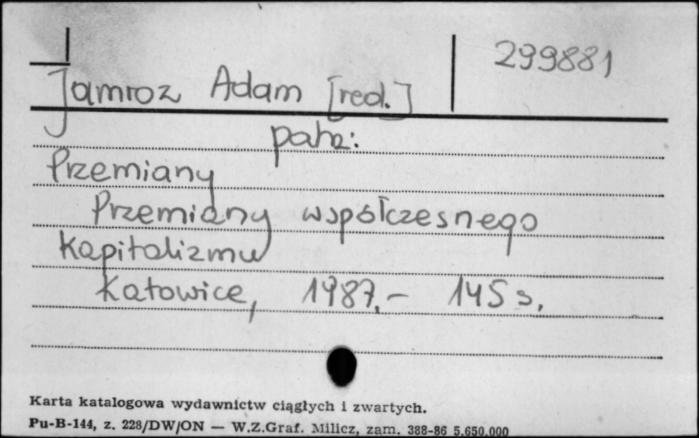 299881
Jamroz Adam [red.]
patrz:
Przemiany
Przemiany współczesnego
kapitalizmu
Katowice, 1987.- 145 s.
Karta katalogowa wydawnictw ciągłych i zwartych.
Pu-B-144, z. 228/DW/ON — W.Z.Graf. Milicz, zam. 388-86 5.650.000